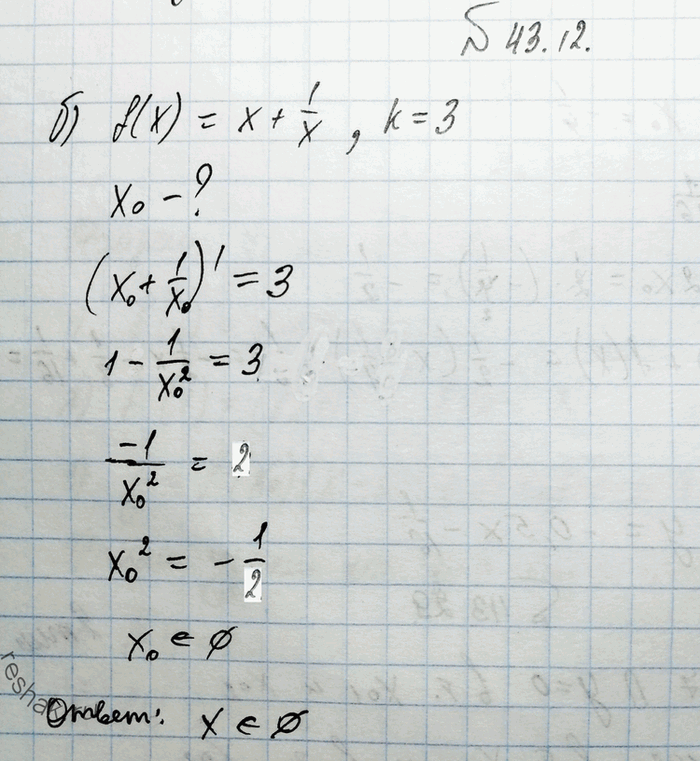 № 43.12.
б) f(x) = x + 1/x, k = 3
x₀ - ?
(x₀ + 1/x₀)' = 3
1 - 1/x₀² = 3
-1/x₀² = 2
x₀² = - 1/2
x₀ ∈ ∅
Ответ: x ∈ ∅